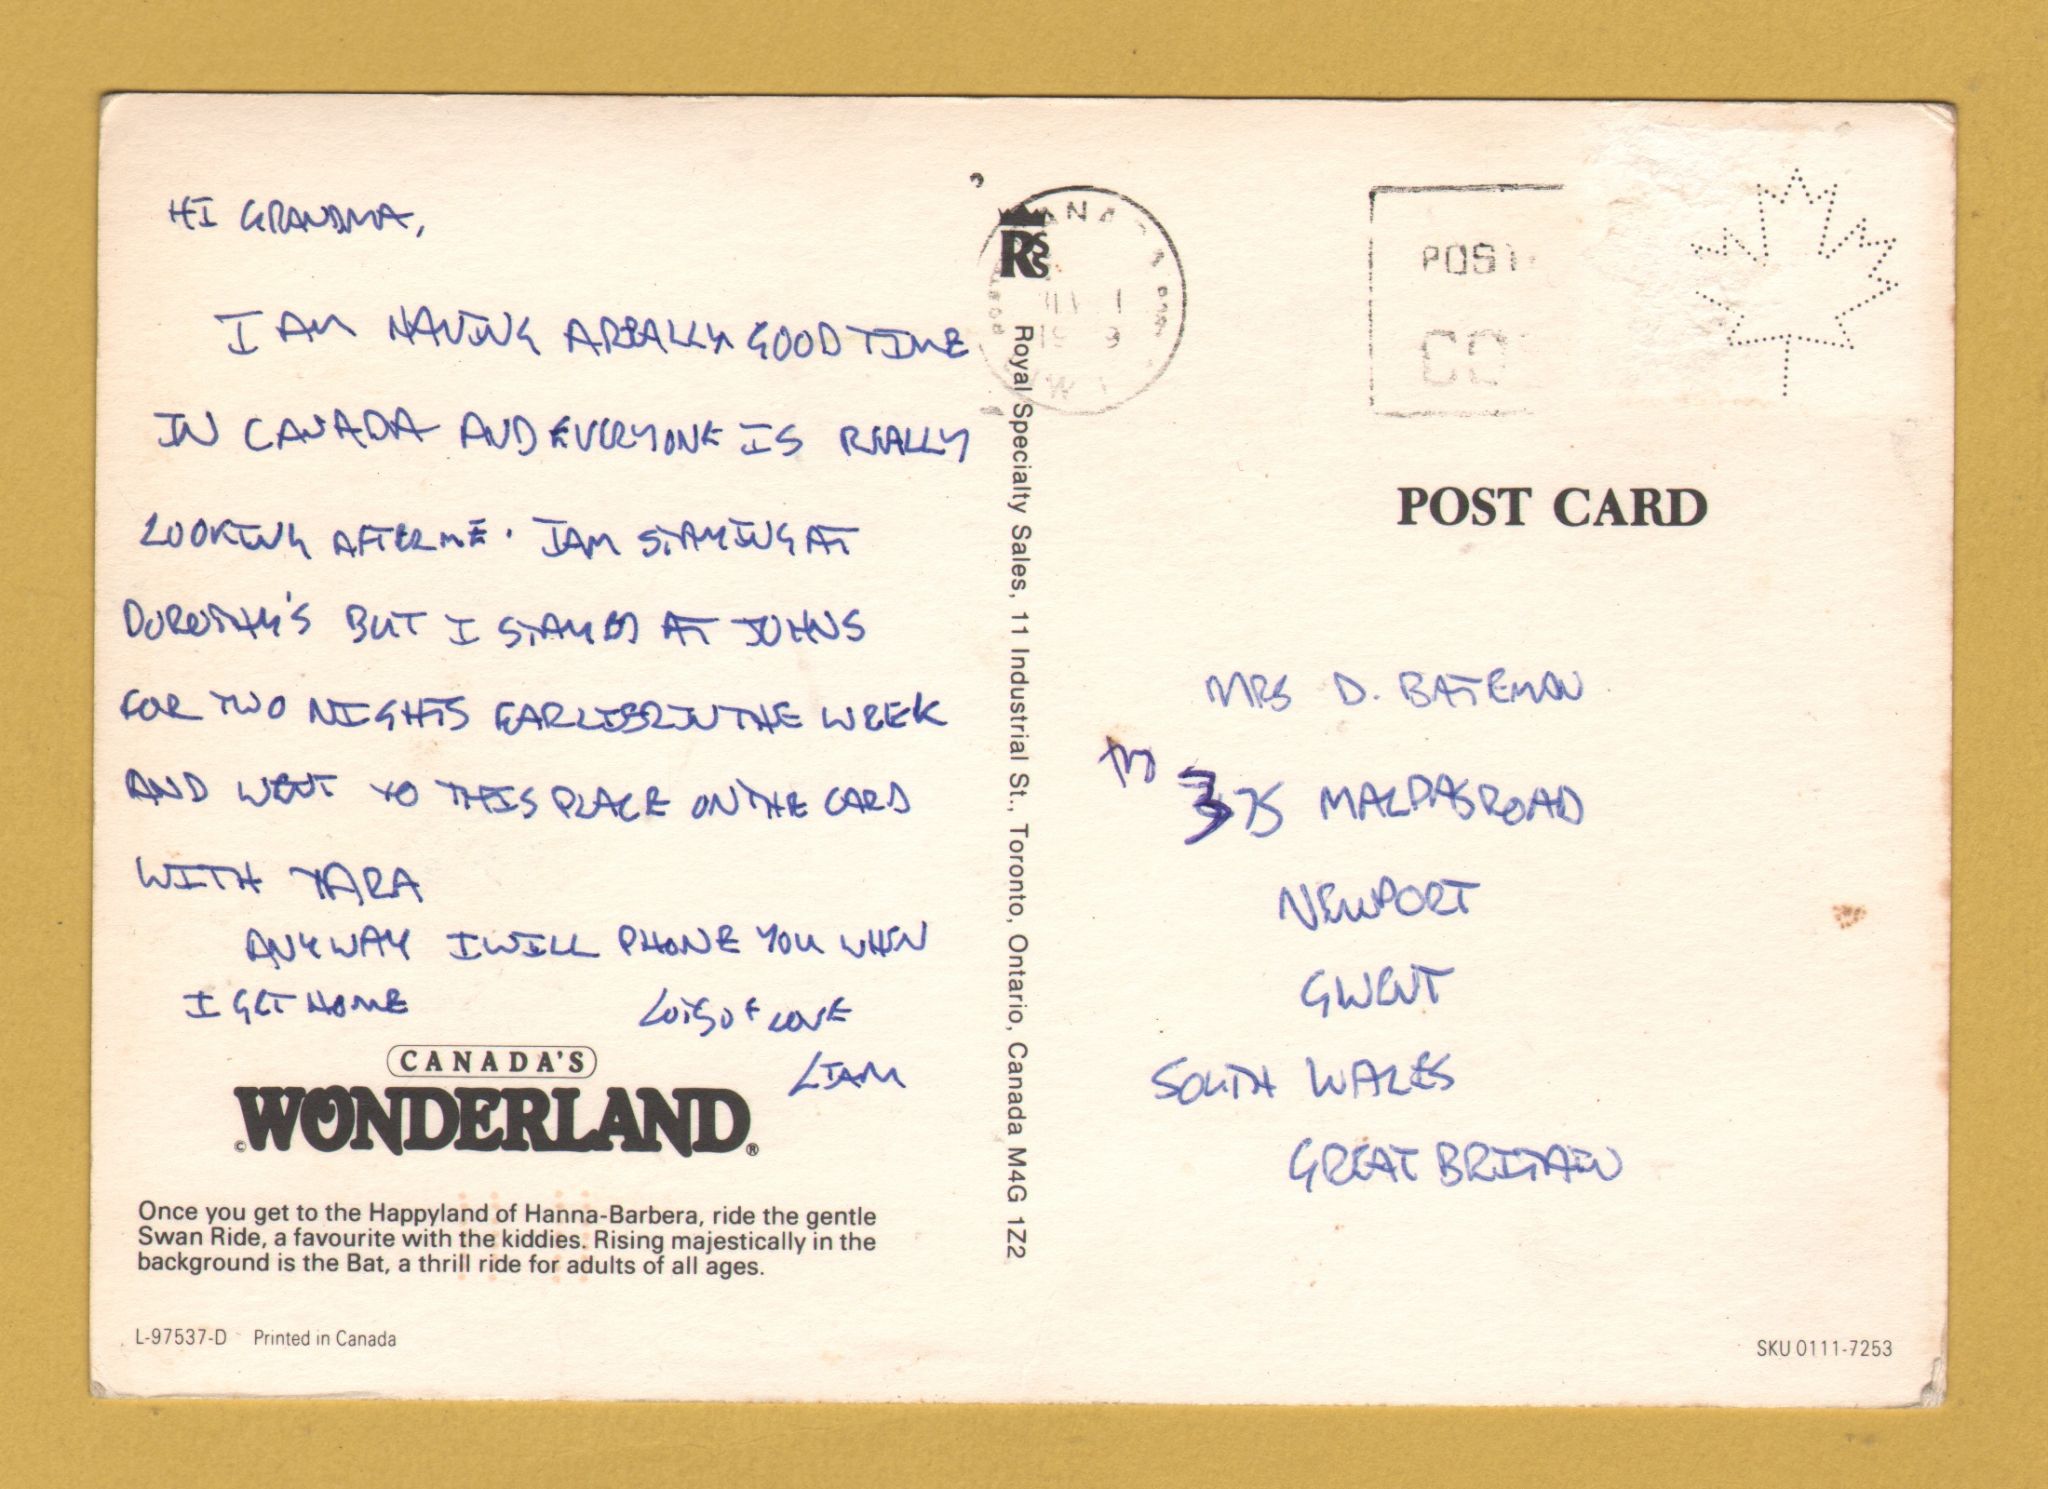 HI GRANDMA,
I AM HAVING A REALLY GOOD TIME
IN CANADA AND EVERYONE IS REALLY
LOOKING AFTER ME. I AM STAYING AT
DOROTHY'S BUT I STAYED AT JOHNS
FOR TWO NIGHTS EARLIER IN THE WEEK
AND WENT TO THIS PLACE ON THE CARD
WITH TARA
ANYWAY I WILL PHONE YOU WHEN
I GET HOME LOTS OF LOVE
LIAM
CANADA'S
© WONDERLAND ®
Once you get to the Happyland of Hanna-Barbera, ride the gentle
Swan Ride, a favourite with the kiddies. Rising majestically in the
background is the Bat, a thrill ride for adults of all ages.
L-97537-D Printed in Canada
RSS
Royal Specialty Sales, 11 Industrial St., Toronto, Ontario, Canada M4G 1Z2
POST
POST CARD
MRS D. BATEMAN
375 MALPAS ROAD
NEWPORT
GWENT
SOUTH WALES
GREAT BRITAIN
SKU 0111-7253